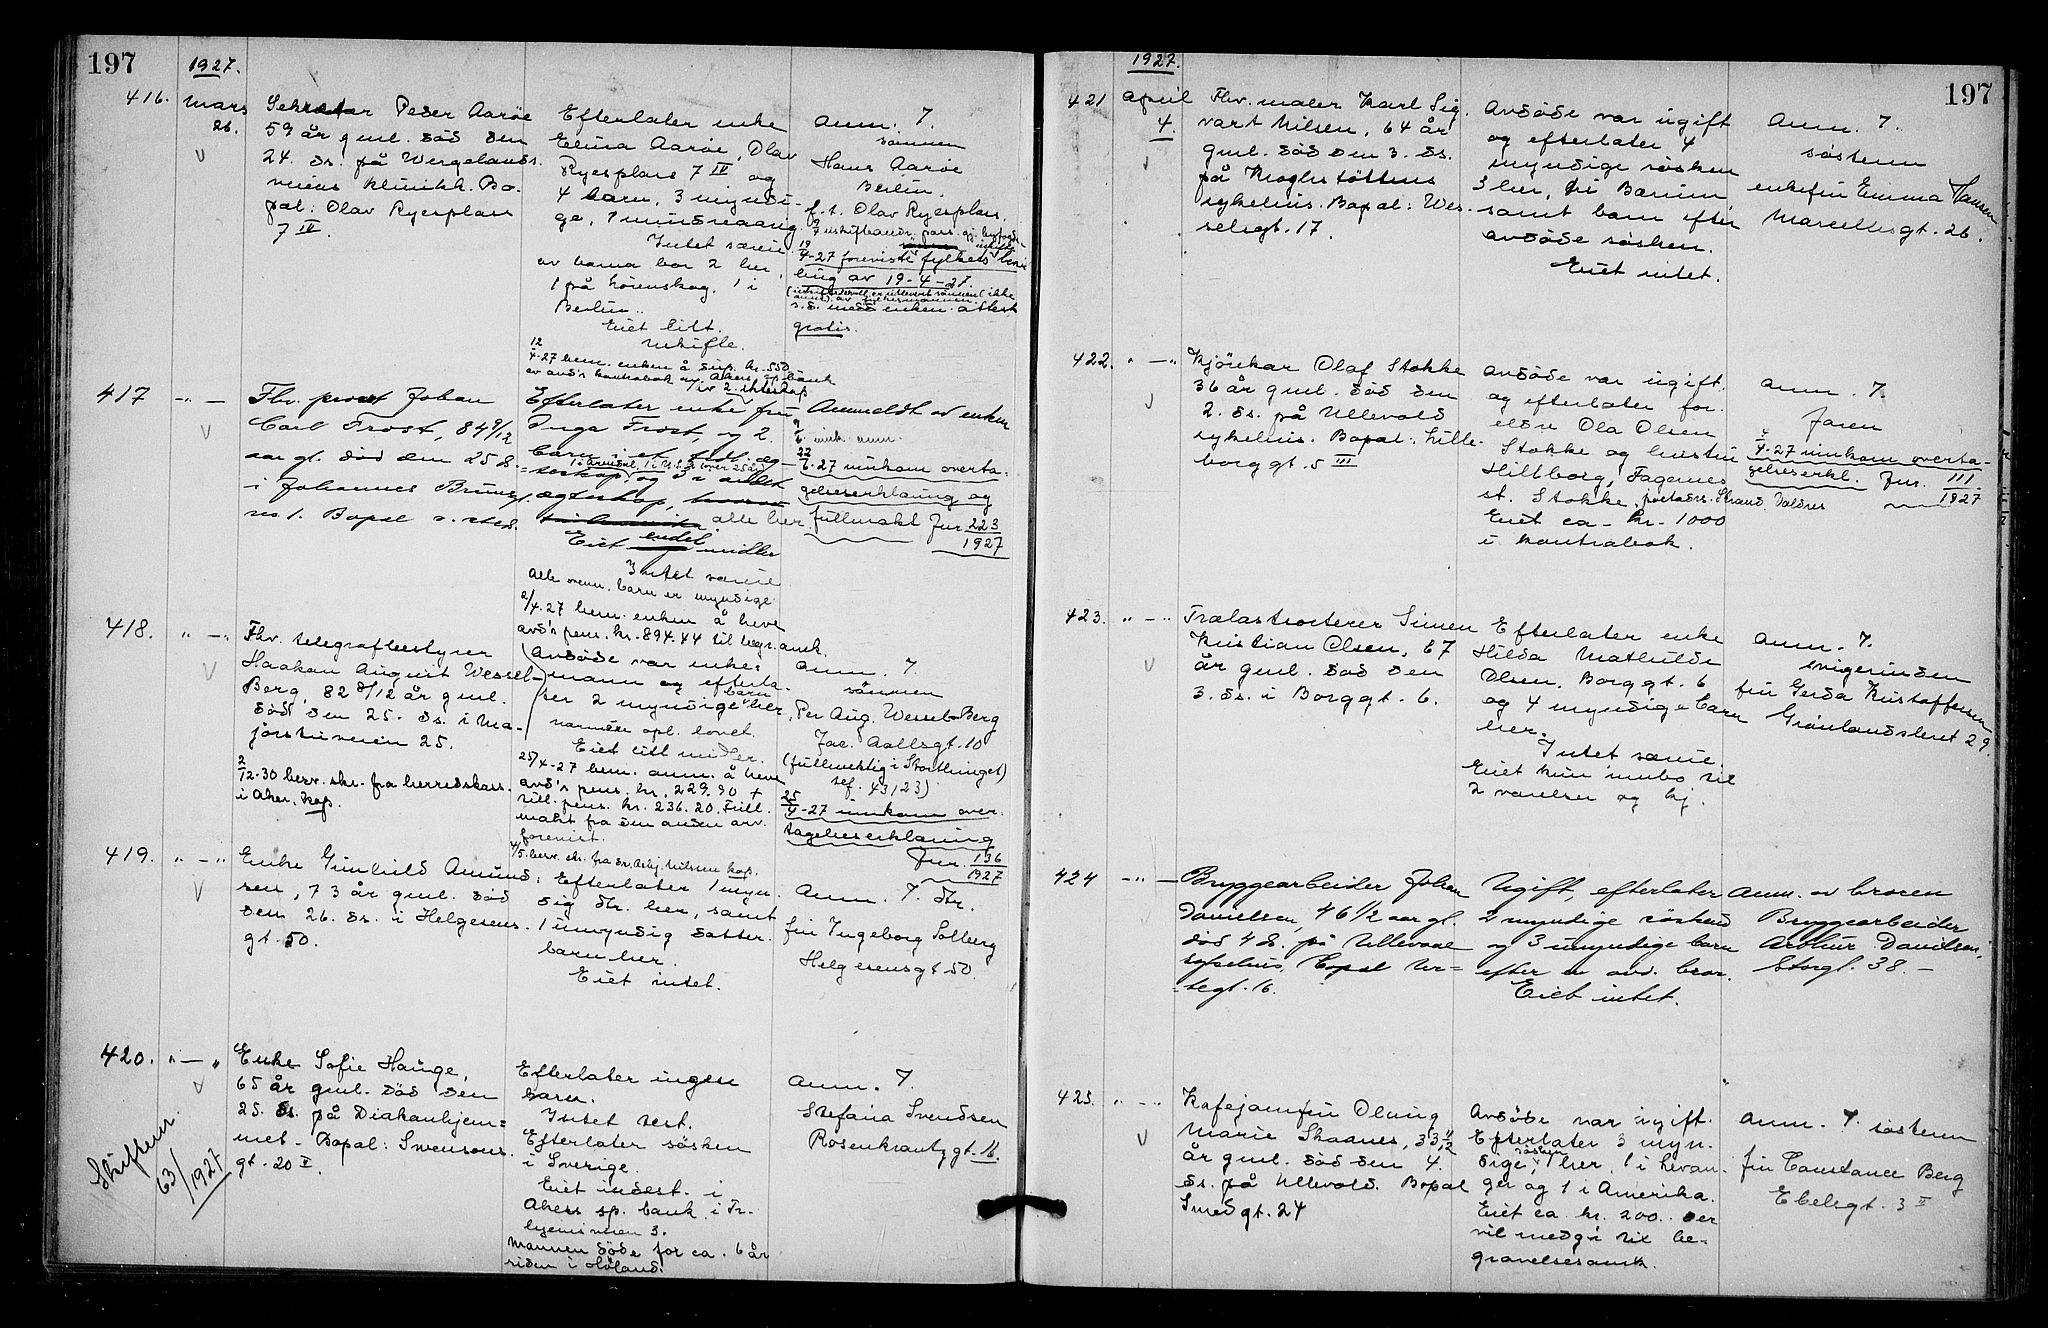 197
1927.
416. Mars
26.
Sekretær Peder Aarøe
59 år gml. död den
24. ds. på Wergelands.
veiens klinikk. Bo.
pæl: Olav Ryesplass
7 IV.
Efterlater enke
Elina Aarøe, Olav
Ryesplass 7 IV og
4 barn, 3 myndi-
ge, 1 mindreaarig.
Intet særeie.
av barna bor 2 her,
1 på Lörenskog, 1 i
Berlin.
Eiet litt.
Uskifte.
12/4-27 bem. enken å
kr. 550
av avd's kontrabok
Anm. 7.
sönnen
Hans Aarøe
Berlin.
f.t. Olav Ryesplass.
19/4-27 forevist fylkets bevil
ling av 19-4-27.
s.d. medd. enken attest
gratis.
417 -"-
Fhv. prost Johan
Carl Frost, 84 9/12
aar gl. död den 25 ds.
i Johannes Bruns
1. Bopæl s. sted.
Efterlater enke fru
Inga Frost, og 2
barn i et tidl. æg-
teskap, og 3 i andet
ægteskap,
alle her.
Eiet endel midler
Intet særeie
Alle ovenn. barn er myndige
2/4.27 bem. enken å heve
avd's pens. kr. 894.44 til begr.omk.
Anmeldt av enken
22/6-27 innkom overta-
gelseserklæring og
fullmakt Jnr. 223
1927
418. "-"
Fhv. telegrafbestyrer
Haakon August Wessel-
Berg, 82 8/12 år gml.
död den 25. ds. i Ma-
jorstuveien 25.
2/12.30 berr. skr. fra herredskass.
i Aker. Kop.
Avdöde var enke-
mann og efterla-
ter 2 myndige barn her,
nærmere opl. lovet.
Eiet litt midler.
25/4-27 bem. anm. å heve
avd's pens. kr. 229.90 +
till. pens. kr. 236.20. Full
makt fra den anden arv.
forevist.
Anm. 7.
sönnen
Per Aug. Wessel-Berg
Jac. Aallsgt. 10
(fullmektig i Stortinget)
tlf. 43123)
25/4-27 innkom over-
tagelseserklæring
Jnr. 136
1927
419. "-"
Enke Gunhild Amund-
sen, 73 år gml. död
den 26. ds. i Helgesens.
gt. 50.
Efterlater 1 myn.
dig dtr. her, samt
1 umyndig datter-
barn her.
Eiet intet.
Anm. 7. dtr.
fru Ingeborg Solberg
Helgesensgt 50.
420. "-"
Enke Sofie Hauge,
65 år gml. död den
25. ds. på Diakonhjem-
met. Bopæl: Swensens.
gt. 20 V.
Skiftejnr.
63/1927
Efterlater ingen
barn.
Intet test.
Efterlater sösken
i Sverige.
Eiet indest. i
Akers sp. bank. i Tr.
hjemsveien 3.
Mannen döde for ca. 6 år
siden i Höland.
Anm. 7.
Stefania Svendsen
Rosenkrantzgt. 11.
197
1927.
421 April
4.
Fhv. maler Karl Sig.
vart Nilsen, 64 år
gml. död den 3. ds.
på Krogstöttens
sykehus. Bopæl: Wes.
selsgt. 17.
Avdöde var ugift
og efterlater 4
myndige sösken,
3 her, 1 i Bærum,
samt barn efter
avdöde sösken.
Eiet intet.
Anm. 7.
söstern
enkefru Emma Hansen
Marcellesgt. 26.
422. "-"
Kjörekar Olaf Stokke
36 år gml. död den
2. ds. på Ullevold
sykehus. Bopæl: Lille-
borggt. 5 III
Avdöde var ugift.
og efterlater for-
eldre Ola Olsen
Stokke og hustru
Hiltborg, Fagernes
st. Stokke, postadrs. Strand, Valdres
Eiet ca. kr. 1000
i kontrabok.
Anm. 7.
faren
4-27 innkom overta-
gelseserkl. Jnr. 111
1927
423. "-"
Trælasttosterer Simen
Kristian Olsen, 67
år gml. död den
3. ds. i Borggt. 6.
Efterlater enke
Hilda Mathilde
Olsen, Borggt. 6
og 4 myndige barn
her.
Intet særeie.
Eiet kun innbo til
2 værelser og kj.
Anm. 7.
svigerinden
fru Gerda Kristoffersen
Grønlandsleret 29.
424 -"-
Bryggearbeider Johan
Danielsen, 46 1/2 aar gl.
död 4 ds. på Ullevaal
sykehus, Bopæl Ur-
tegt. 16.
Ugift, efterlater
2 myndige söskend
og 3 umyndige barn
efter en avd. bror.
Eiet intet.
Anm. av broren
Bryggearbeider
Arthur Danielsen,
Storgt. 38.-
425. "-"
Kafejomfru Olaug
Marie Skaanes, 33 11/12
år gml. död den 4.
ds. på Ullevold. Bopæl
Smedgt. 24
Avdöde var ugift.
Efterlater 3 myn-
dige sösken, 1 her, 1 i Levan-
ger og 1 i Amerika.
Eiet ca. kr. 200. der
vil medgå til be-
gravelsesomk.
Anm. 7. söstern
fru Constance Berg
Ebelsgt. 3 II